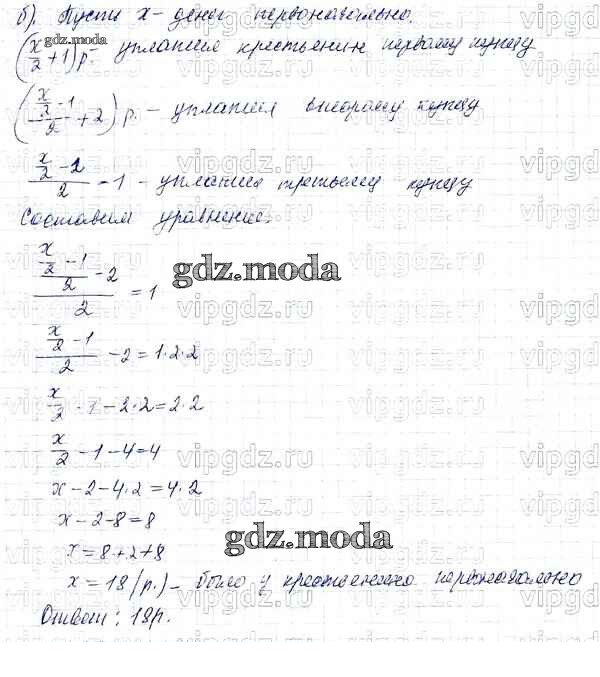 б). Пусть x - денег первоначально.
(x/2 + 1) р. - уплатил крестьянин первому купцу
gdz.moda
((x/2 - 1)/2 + 2) р. - уплатил второму купцу
(x/2 - 2)/2 - 1 - уплатил третьему купцу
Составим уравнение.
((x/2 - 1)/2 - 2)/2 = 1
gdz.moda
(x/2 - 1)/2 - 2 = 1·2·2
x/2 - 1 - 2·2 = 2·2
x/2 - 1 - 4 = 4
x - 2 - 4·2 = 4·2
x - 2 - 8 = 8
gdz.moda
x = 8 + 2 + 8
x = 18 (р.) - было у крестьянина первоначально
Ответ: 18р.
vipgdz.ru